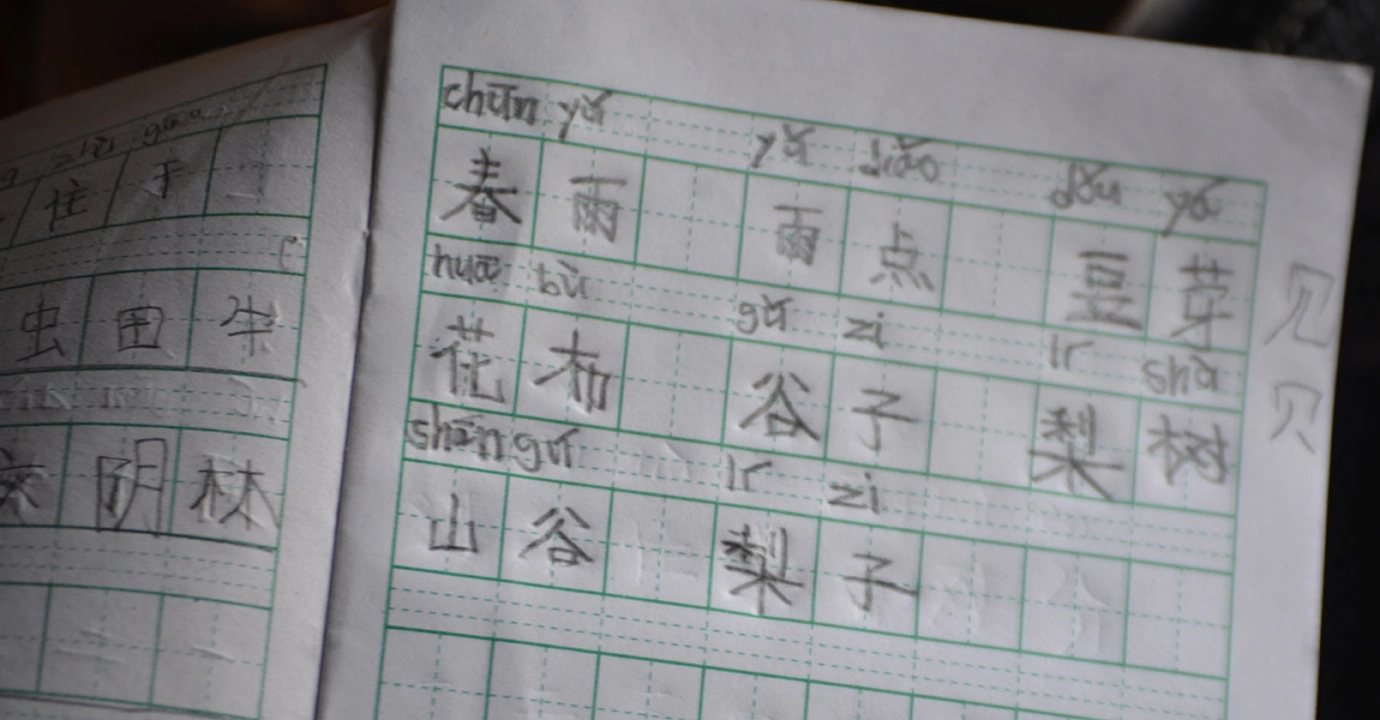 住 于
虫 田 牛
阴 林
chūn yǔ yǔ diǎo dǒu yá
春 雨 雨 点 豆 芽
huā bù gǔ zi lí shù
花 布 谷 子 梨 树
shān gǔ lí zi
山 谷 梨 子
见
贝